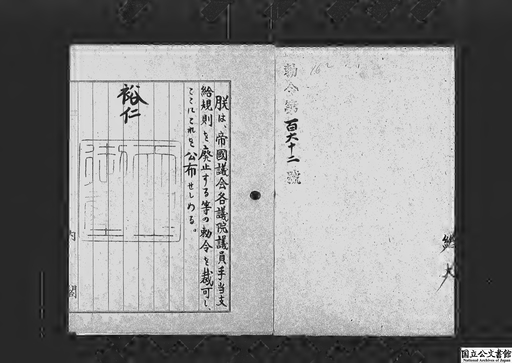 勅令第百六十二號
朕は、帝國議会各議院議員手当支
給規則を廃止する等の勅令を裁可し、
ここにこれを公布せしめる。
裕仁
内閣
国立公文書館
National Archives of Japan